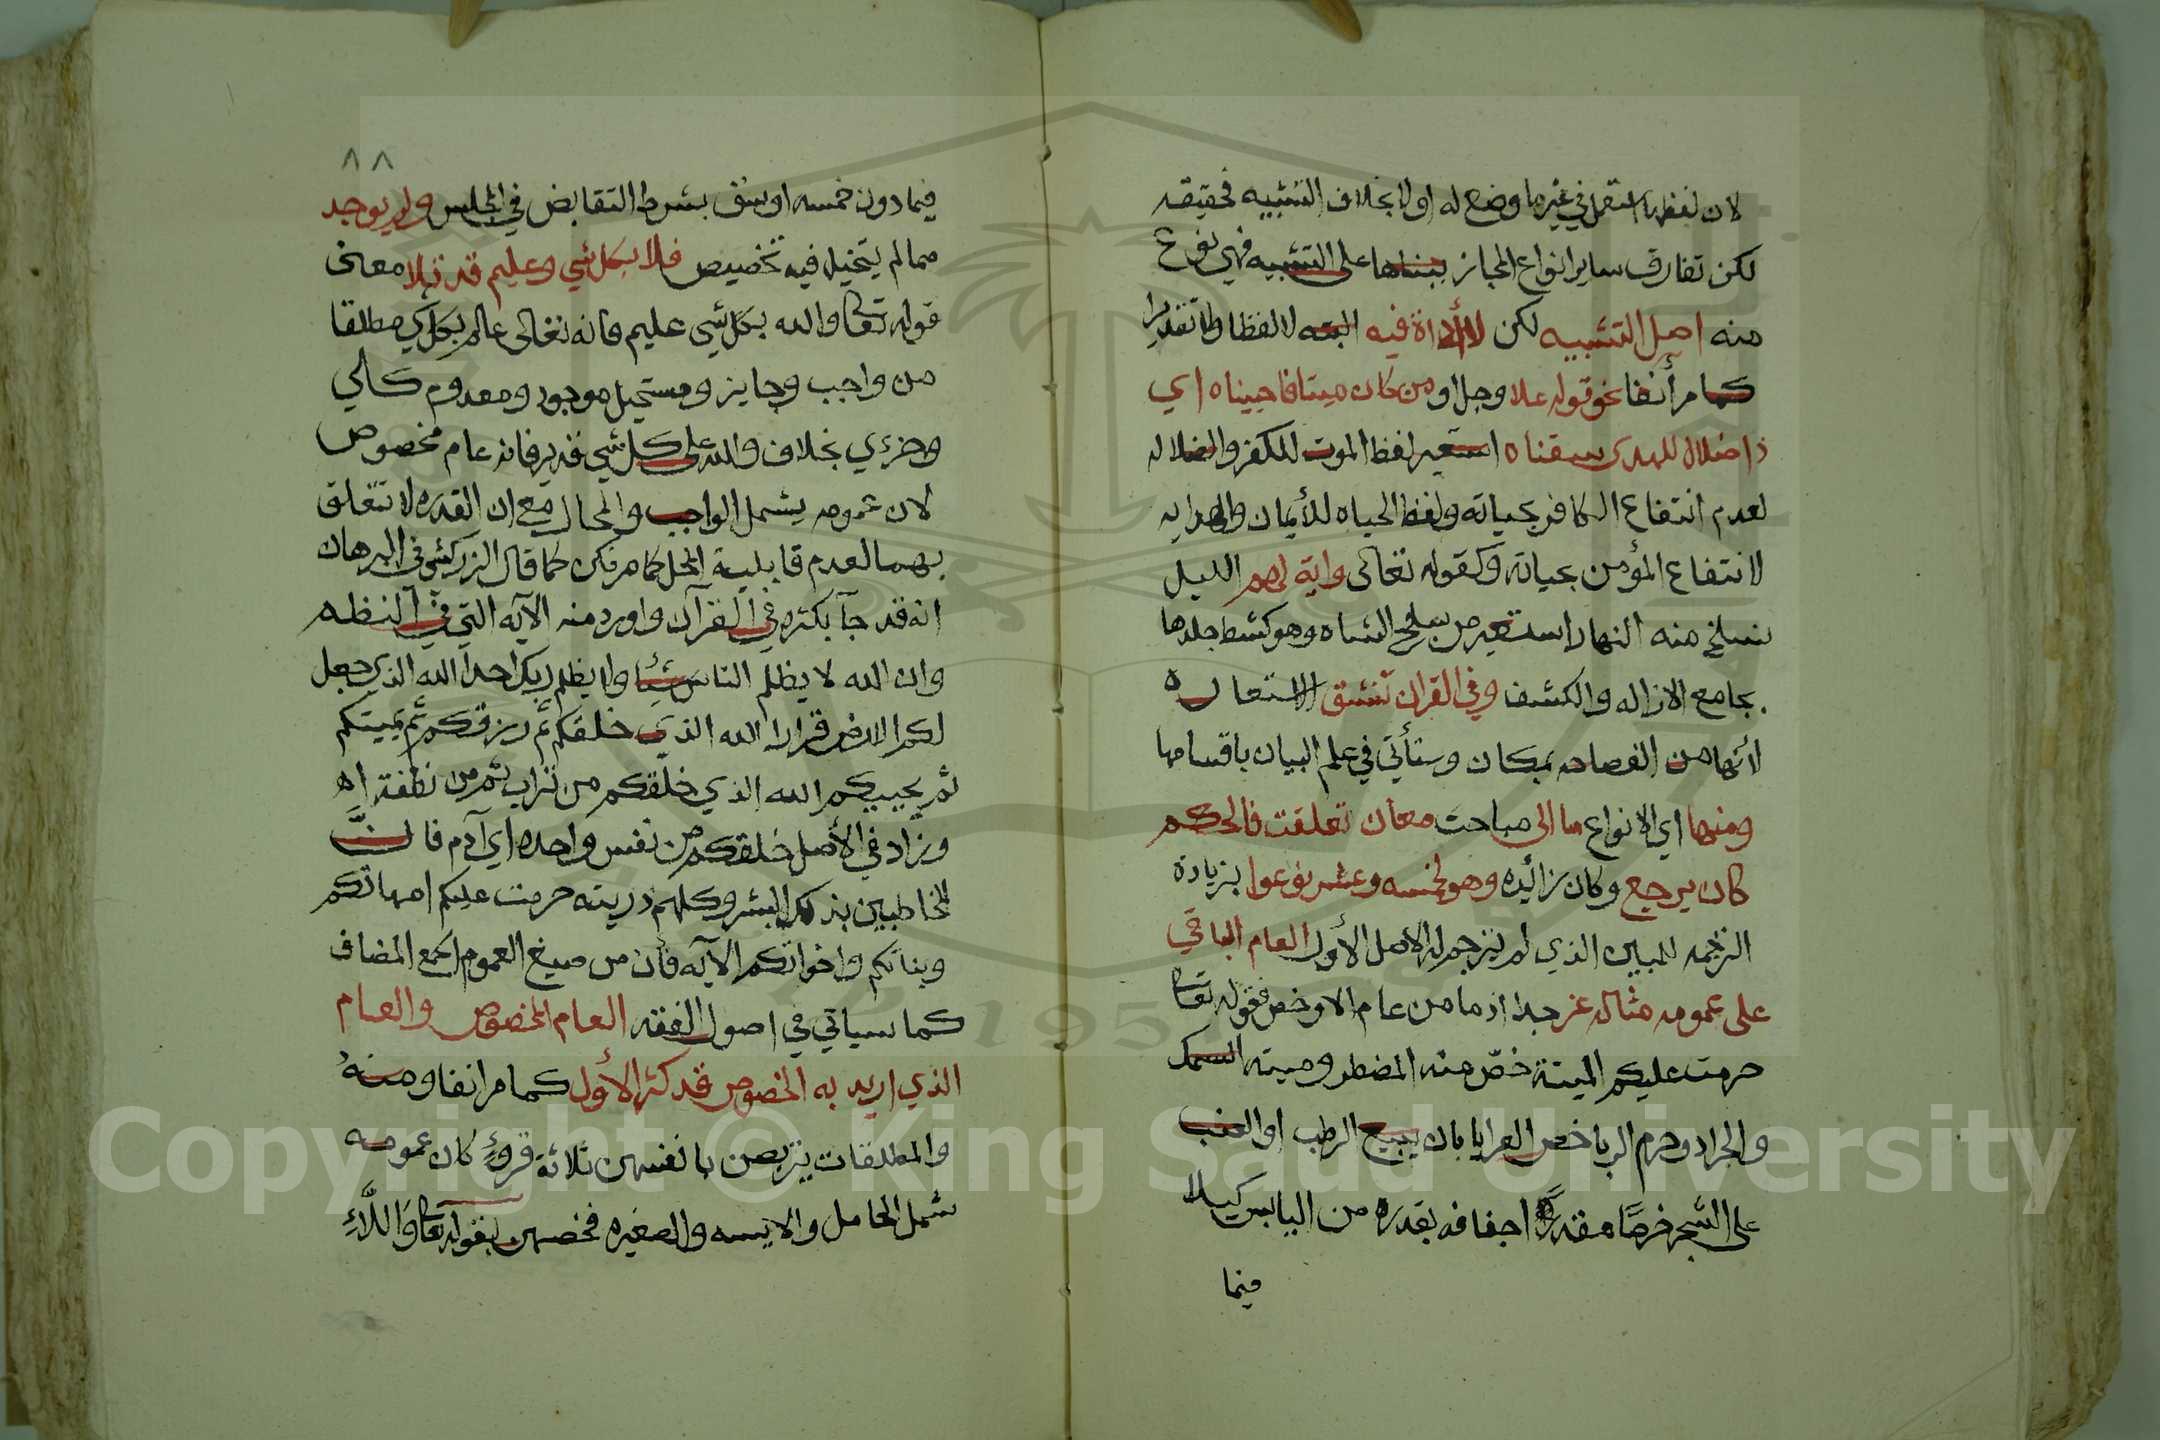 لان لفظها استعمل في غير ما وضع له اولا بخلاف التشبيه فحقيقه
لكن تفارق ساير انواع المجاز ببناها على التشبيه فهي نوع
منه اصل التشبيه لكن لا أداة فيه البته لا لفظا ولا تقديرا
كما مر أنفا نحو قوله علا وجل او من كان ميتا فاحييناه اي
ذا ضلال للهدى سقناه استعير لفظ الموت للكفر والضلاله
لعدم انتفاع الكافر بحياته ولفظ الحياه للأيمان والهدايه
لانتفاع المؤمن بحياته وكقوله تعالى واية لهم الليل
نسلخ منه النهار استعير من سلخ الشاه وهو كشط جلدها
بجامع الازاله والكشف وفي القران تنشق الاستعاره
لانها من الفصاحه بمكان وستأتي في علم البيان باقسامها
ومنها اي الانواع ما الى مباحث معان تعلقت فالحكم
كان يرجع وكان زائيده وهو لخمسه وعشر نوعوا بزيادة
الترجمه للمبين الذي لم يترجم له الاصل الأول العام الباقي
على عمومه مثاله عز جدا اذ ما من عام الا وخص فقوله تعا
حرمت عليكم الميتة خصّ منه المضطر وميته السمك
والجراد وحرم الربا خص العرايا بان يبيع الرطب او العنب
على الشجر خرصًا مقدرًا جفافه بقدره من اليابس كيلا
فيما
٨٨
فيما دون خمسه اوسق بشرط التقابض في المجلس ولم يوجد
مما لم يتخيل فيه تخصيص فلا بكل شي وعليم قد تلا معنى
قوله تعا والله بكل شي عليم فانه تعالى عالم بكل شي مطلقا
من واجب وجايز ومستحيل موجود ومعدوم كلي
وجزءي بخلاف والله على كل شي قدير فانه عام مخصوص
لان عمومه يشمل الواجب والمحال مع ان القدره لا تتعلق
بهما لعدم قابلية المحل كما مر كما قال الزركشي في البرهان
انه قد جآ بكثره في القرآن واورد منه الآيه التي في النظم
وان الله لا يظلم الناس شيئا ولا يظلم ربك احدا الله الذي جعل
لكم الارض قرارا الله الذي خلقكم ثم رزقكم ثم يميتكم
ثم يحييكم الله الذي خلقكم من تراب ثم من نطفة اه
وزاد في الأصل خلقكم من نفس واحده اي آدم فان
المخاطبين بذلك البشر وكلهم ذريته حرمت عليكم امهاتكم
وبناتكم واخواتكم الآيه فأن من صيغ العموم الجمع المضاف
كما سياتي في اصول الفقه العام المخصوص والعام
الذي اريد به الخصوص قد كثر الأول كما مر انفا ومنهُ
والمطلقات يتربصن بانفسهن ثلاثة قروءٍ كان عمومه
شمل الحامل والايسه والصغيره فخصهن بقوله تعا وَاللَّاءِ